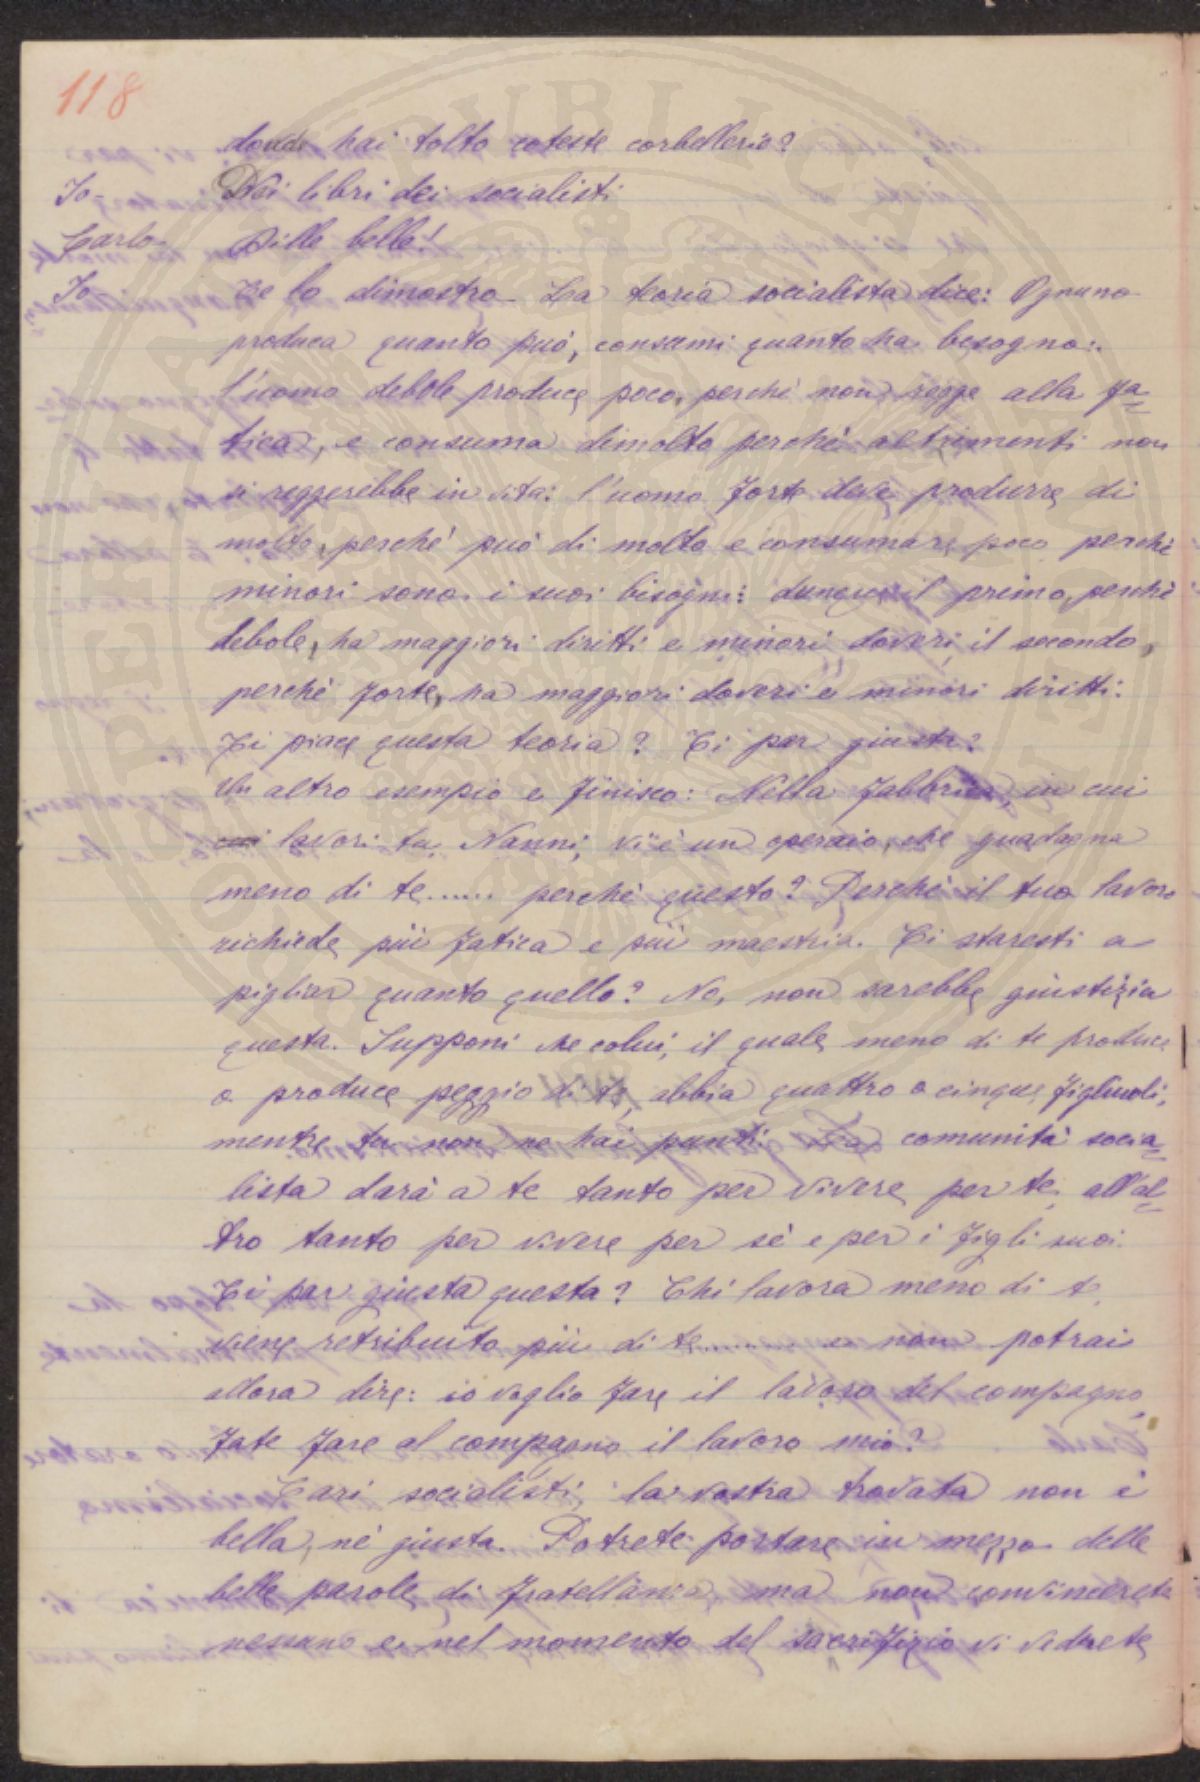 118
donde hai tolto coteste corbellerie?
Io Nei libri dei socialisti
Carlo Dille belle!
Io Te lo dimostro. La teoria socialista dice: Ognuno
produca quanto può, consumi quanto ha bisogno:
l'uomo debole produce poco, perchè non regge alla fa=
tica, e consuma dimolto perchè altrimenti non
si reggerebbe in vita: l'uomo forte deve produrre di
molto, perchè può di molto e consumare poco perchè
minori sono i suoi bisogni: dunque il primo, perchè
debole, ha maggiori diritti e minori doveri, il secondo,
perchè forte, ha maggiori doveri e minori diritti:
Ti piace questa teoria? Ti par giusta?
Un altro esempio e finisco: Nella fabbrica, in cui
cui lavori tu, Nanni, vi è un operaio, che guadagna
meno di te...... perchè questo? Perchè il tuo lavoro
richiede più fatica e più maestria. Ci staresti a
pigliar quanto quello? No, non sarebbe giustizia
questa. Supponi che colui, il quale meno di te produce
o produce peggio di te, abbia quattro o cinque figliuoli,
mentre tu non ne hai punti. La comunità socia=
lista darà a te tanto per vivere per te, all'al=
tro tanto per vivere per sè e per i figli suoi.
Ti par giusta questa? Chi lavora meno di te
viene retribuito più di te....... e non potrai
allora dire: io voglio fare il lavoro del compagno,
fate fare al compagno il lavoro mio?
Cari socialisti, la vostra trovata non è
bella, nè giusta. Potrete portare in mezzo delle
belle parole di fratellanza, ma non convincerete
nessuno e nel momento del sacrifizio vi vedrete